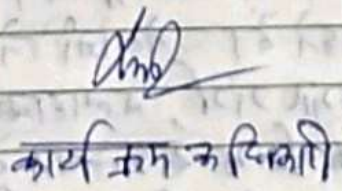 कार्य क्रम अधिकारी